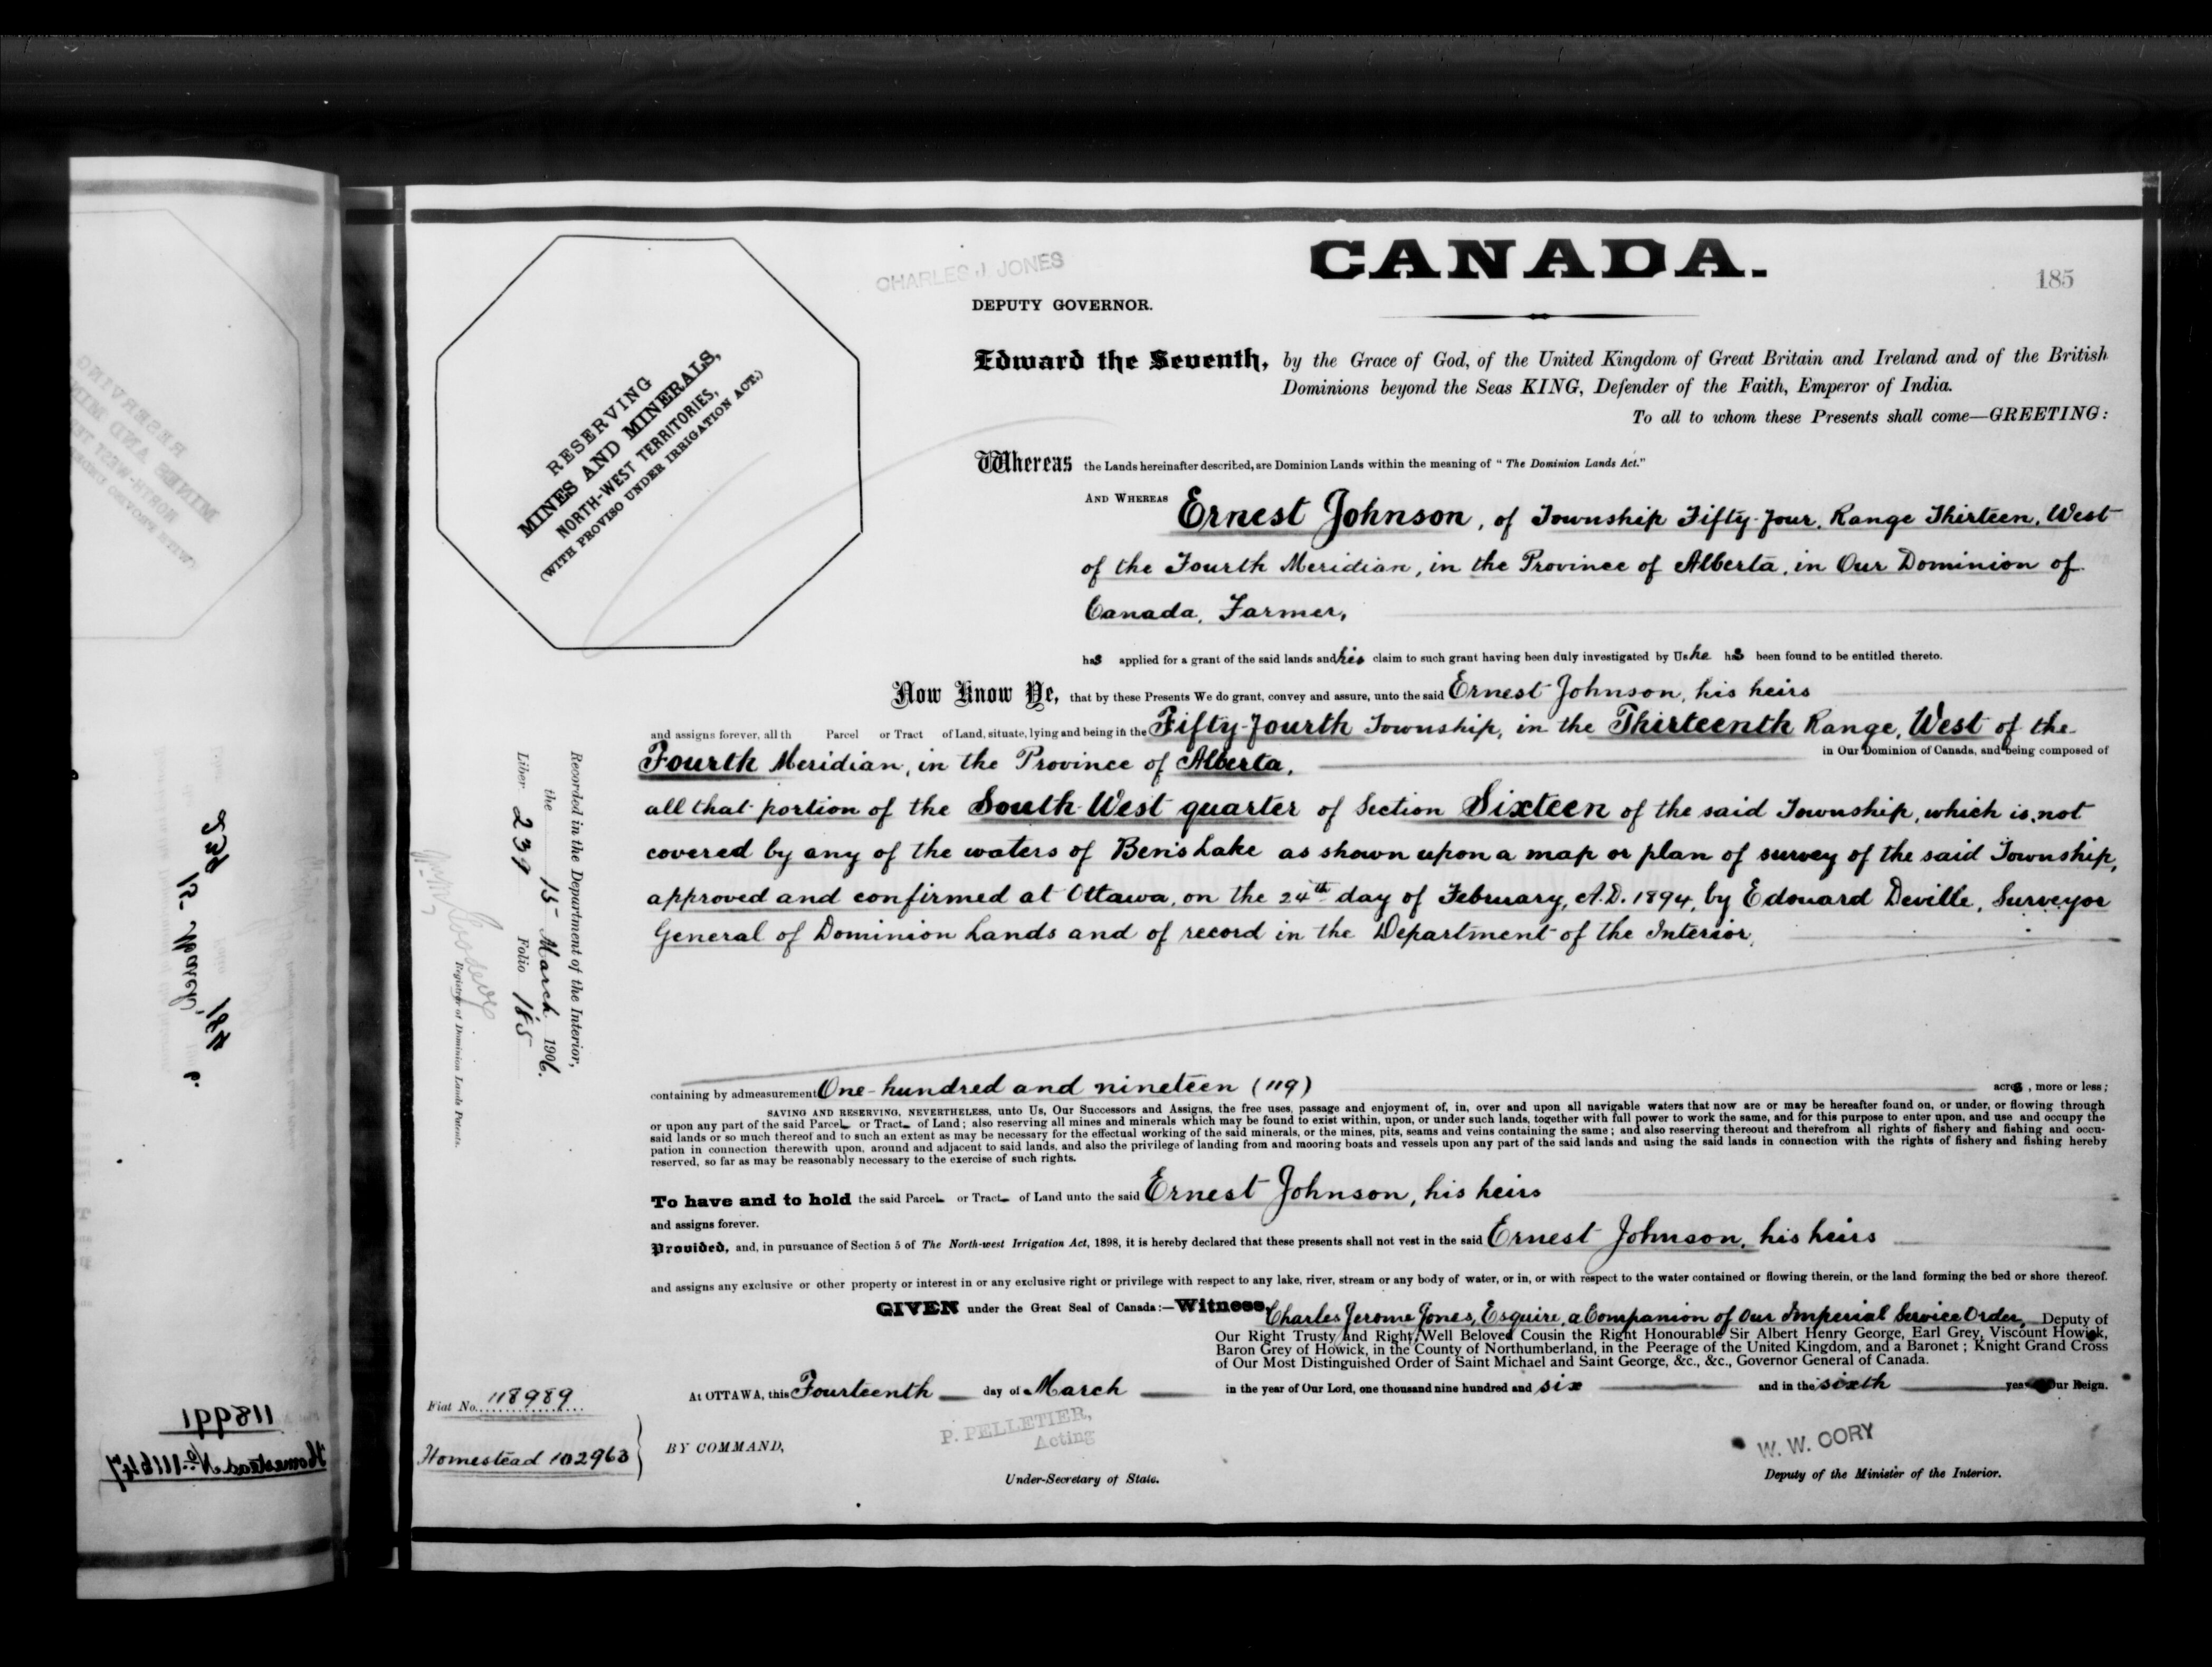 CANADA.
185
CHARLES J. JONES
DEPUTY GOVERNOR.
RESERVING
MINES AND MINERALS,
NORTH-WEST TERRITORIES,
(WITH PROVISO UNDER IRRIGATION ACT.)
Edward the Seventh, by the Grace of God, of the United Kingdom of Great Britain and Ireland and of the British
Dominions beyond the Seas KING, Defender of the Faith, Emperor of India.
To all to whom these Presents shall come—GREETING:
Whereas the Lands hereinafter described, are Dominion Lands within the meaning of "The Dominion Lands Act."
AND WHEREAS Ernest Johnson, of Township Fifty-four, Range Thirteen, West
of the Fourth Meridian, in the Province of Alberta, in Our Dominion of
Canada, Farmer,
has applied for a grant of the said lands and his claim to such grant having been duly investigated by Us he has been found to be entitled thereto.
Now Know Ye, that by these Presents We do grant, convey and assure, unto the said Ernest Johnson, his heirs
and assigns forever, all th Parcel or Tract of Land, situate, lying and being in the Fifty-fourth Township, in the Thirteenth Range, West of the
Fourth Meridian, in the Province of Alberta, in Our Dominion of Canada, and being composed of
all that portion of the South West quarter of Section Sixteen of the said Township, which is not
covered by any of the waters of Ben's Lake as shown upon a map or plan of survey of the said Township,
approved and confirmed at Ottawa, on the 24th day of February, A.D. 1894, by Edouard Deville, Surveyor
General of Dominion Lands and of record in the Department of the Interior,
containing by admeasurement One hundred and nineteen (119) acres, more or less;
SAVING AND RESERVING, NEVERTHELESS, unto Us, Our Successors and Assigns, the free uses, passage and enjoyment of, in, over and upon all navigable waters that now are or may be hereafter found on, or under, or flowing through
or upon any part of the said Parcel or Tract of Land; also reserving all mines and minerals which may be found to exist within, upon, or under such lands, together with full power to work the same, and for this purpose to enter upon, and use and occupy the
said lands or so much thereof and to such an extent as may be necessary for the effectual working of the said minerals, or the mines, pits, seams and veins containing the same; and also reserving thereout and therefrom all rights of fishery and fishing and occu-
pation in connection therewith upon, around and adjacent to said lands, and also the privilege of landing from and mooring boats and vessels upon any part of the said lands and using the said lands in connection with the rights of fishery and fishing hereby
reserved, so far as may be reasonably necessary to the exercise of such rights.
To have and to hold the said Parcel or Tract of Land unto the said Ernest Johnson, his heirs
and assigns forever.
Provided, and, in pursuance of Section 5 of The North-west Irrigation Act, 1898, it is hereby declared that these presents shall not vest in the said Ernest Johnson, his heirs
and assigns any exclusive or other property or interest in or any exclusive right or privilege with respect to any lake, river, stream or any body of water, or in, or with respect to the water contained or flowing therein, or the land forming the bed or shore thereof.
GIVEN under the Great Seal of Canada:—Witness, Charles Jerome Jones, Esquire, a Companion of Our Imperial Service Order, Deputy of
Our Right Trusty and Right Well Beloved Cousin the Right Honourable Sir Albert Henry George, Earl Grey, Viscount Howick,
Baron Grey of Howick, in the County of Northumberland, in the Peerage of the United Kingdom, and a Baronet; Knight Grand Cross
of Our Most Distinguished Order of Saint Michael and Saint George, &c., &c., Governor General of Canada.
At OTTAWA, this Fourteenth day of March in the year of Our Lord, one thousand nine hundred and six and in the sixth year Our Reign.
BY COMMAND,
P. PELLETIER,
Acting
Under-Secretary of State.
W. W. CORY
Deputy of the Minister of the Interior.
Fiat No. 118989
Homestead 102963
Recorded in the Department of the Interior,
the 15 March 1906.
Liber 239 Folio 185
Registrar of Dominion Lands Patents.
15 March
118991
Homestead No. 111647